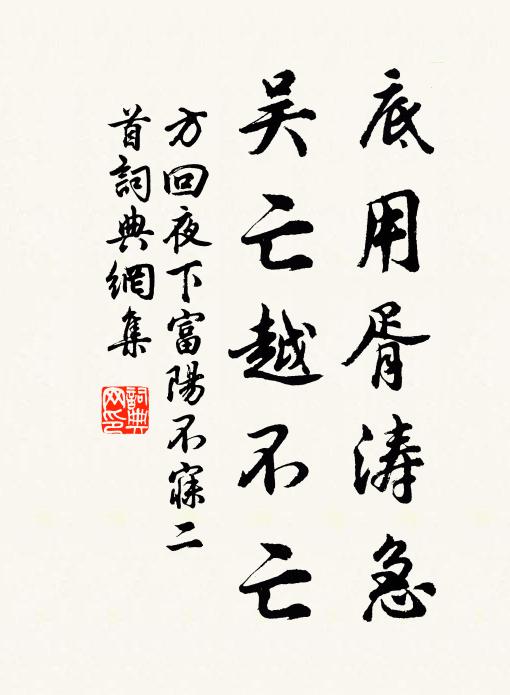 底用胥涛急
吴亡越不亡
方回夜下富陽不寐二
首詞典網集
詞典
网印